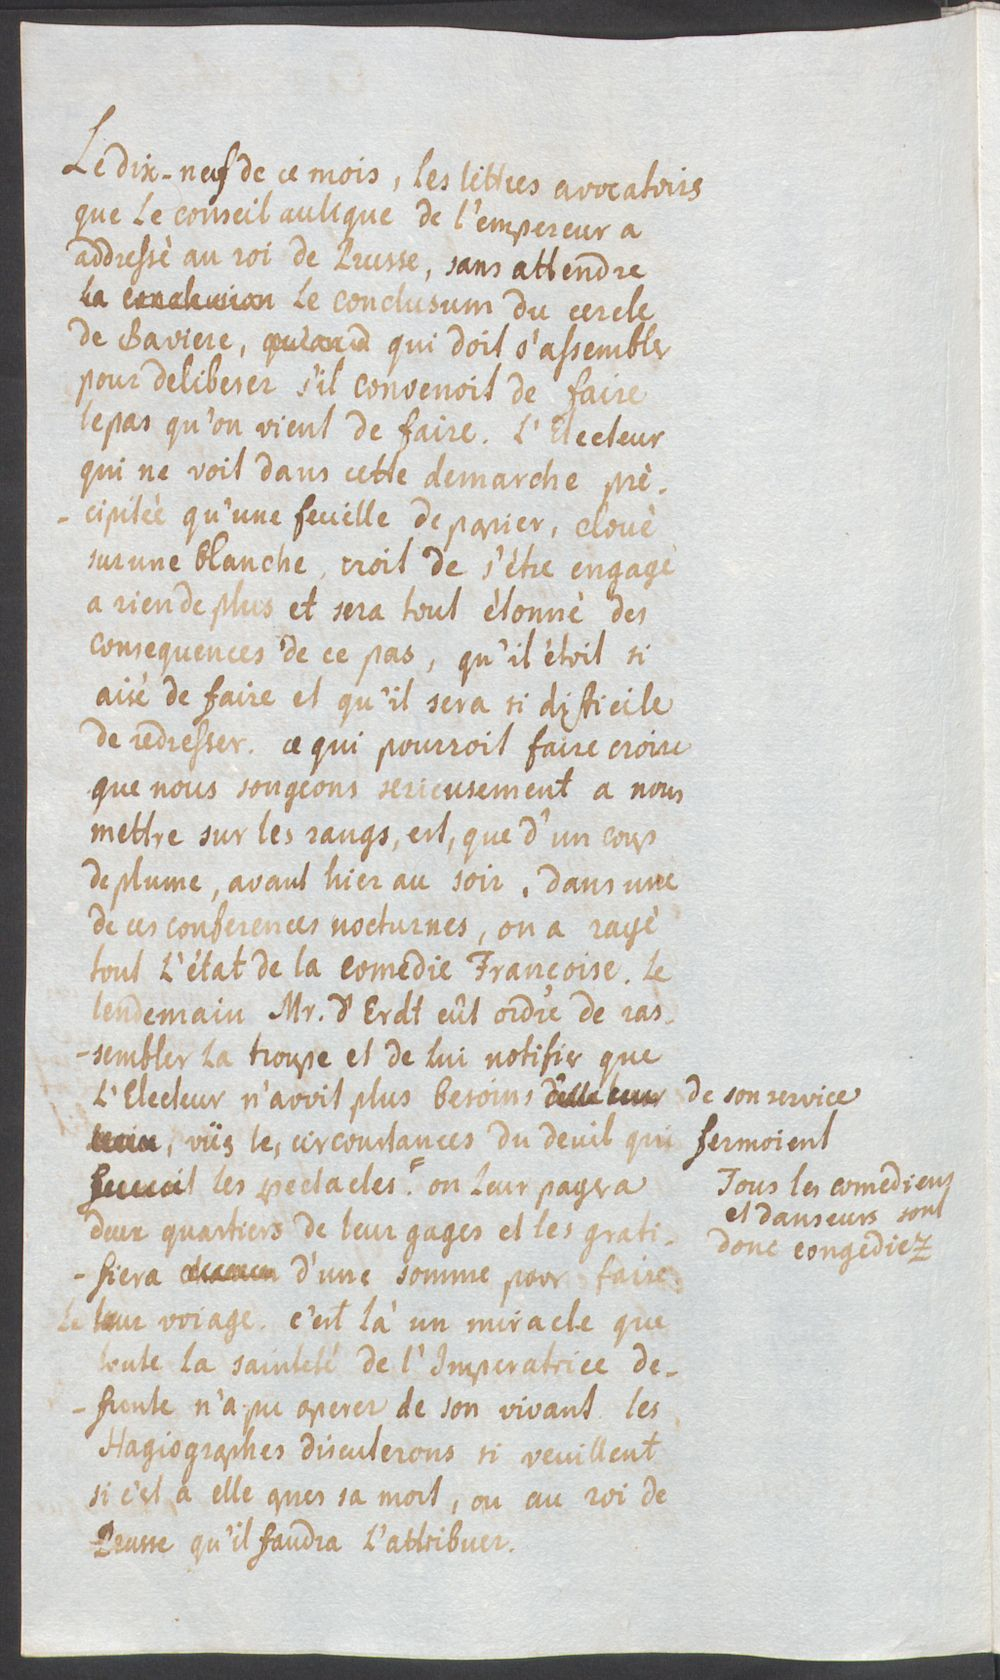 Le dix-neuf de ce mois, les lettres avocatoires
que Le conseil aulique de l'empereur a
addressé au roi de Prusse, sans attendre
La conclusion Le conclusum du cercle
de Baviere, qui doit s'assembler
pour deliberer s'il convenoit de faire
le pas qu'on vient de faire. L'Electeur
qui ne voit dans cette demarche pré-
-cipitée qu'une feuille de papier, cloué
sur une blanche, croit de s'étre engagé
a rien de plus et sera tout étonné des
consequences de ce pas, qu'il étoit si
aisé de faire et qu'il sera si difficile
de redresser. ce qui pourroit faire croire
que nous songeons serieusement a nous
mettre sur les rangs, est, que d'un coup
de plume, avant hier au soir, dans une
de ces conferences nocturnes, on a rayé
tout L'état de la comedie Françoise. Le
lendemain Mr. d'Erdt eût ordre de ras-
-sembler La troupe et de Lui notifier que
L'Electeur n'avoit plus besoins de son service
, vüs les circonstances du deuil qui fermoient
les spectacles. on Leur payera
deux quartiers de leur gages et les grati-
-fiera d'une somme pour faire
Le voiage. c'est là un miracle que
toute la sainteté de l'Imperatrice de-
-funte n'a pu operer de son vivant. les
Hagiographes discuterons si veuillent
si c'est à elle apres sa mort, ou au roi de
Prusse qu'il faudra L'attribuer.
Tous les comediens
et danseurs sont
donc congediez